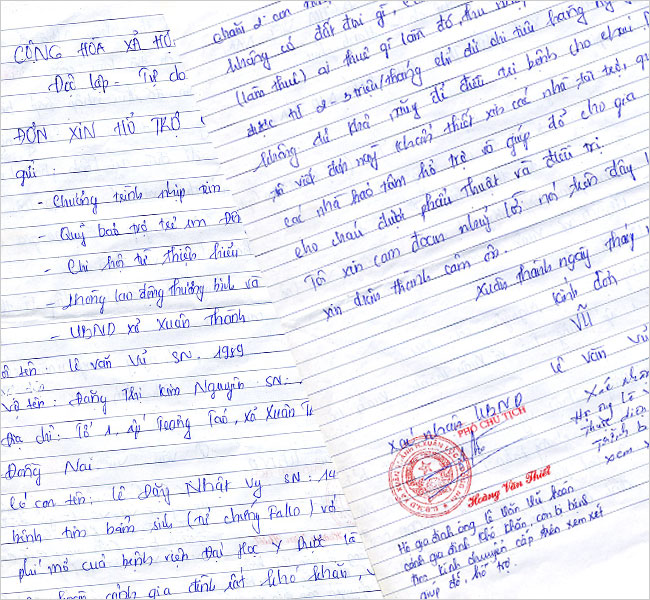 CỘNG HÒA XÃ HỘ
Độc lập - Tự do
ĐƠN XIN HỖ TRỢ
gửi :
- Chương trình nhịp tim
- Quỹ bảo trợ trẻ em
- Chi hội từ thiện hiếu
- phòng lao động thương binh và
- UBND xã Xuân Thành
tên : Lê Văn Vũ SN. 1989
vợ tên : Đặng Thị Kim Nguyên SN:
Địa chỉ: Tổ 1, ấp Trảng Táo, xã Xuân T
Đồng Nai.
Có con tên: Lê Đặng Nhật Vy SN : 14
bệnh tim bẩm sinh (tứ chứng Fallo) với
phí mổ của bệnh viện Đại Học Y Dược là
cảnh gia đình rất khó khăn,
không có đất đai gì,
(làm thuê) ai thuê gì làm đó, thu nhập
được từ 2 - 3 triệu/tháng chỉ đủ chi tiêu hàng ng
không đủ khả năng để điều trị bệnh cho cháu
tôi viết đơn này khẩn thiết xin các nhà tài trợ, qu
các nhà hảo tâm hỗ trợ và giúp đỡ cho gia
cho cháu được phẫu thuật và điều trị
Tôi xin cam đoan những lời nói trên đây
xin chân thành cảm ơn.
Xuân Thành ngày tháng
Kính đơn
Vũ
Lê Văn Vũ
Xác nhận UBND
PHÓ CHỦ TỊCH
Hoàng Văn Thiết
Xác nhận
Hộ gia đình ông Lê Văn Vũ hoàn
cảnh gia đình khó khăn, con bị bệnh
tim, kính chuyển cấp trên xem xét
giúp đỡ, hỗ trợ.